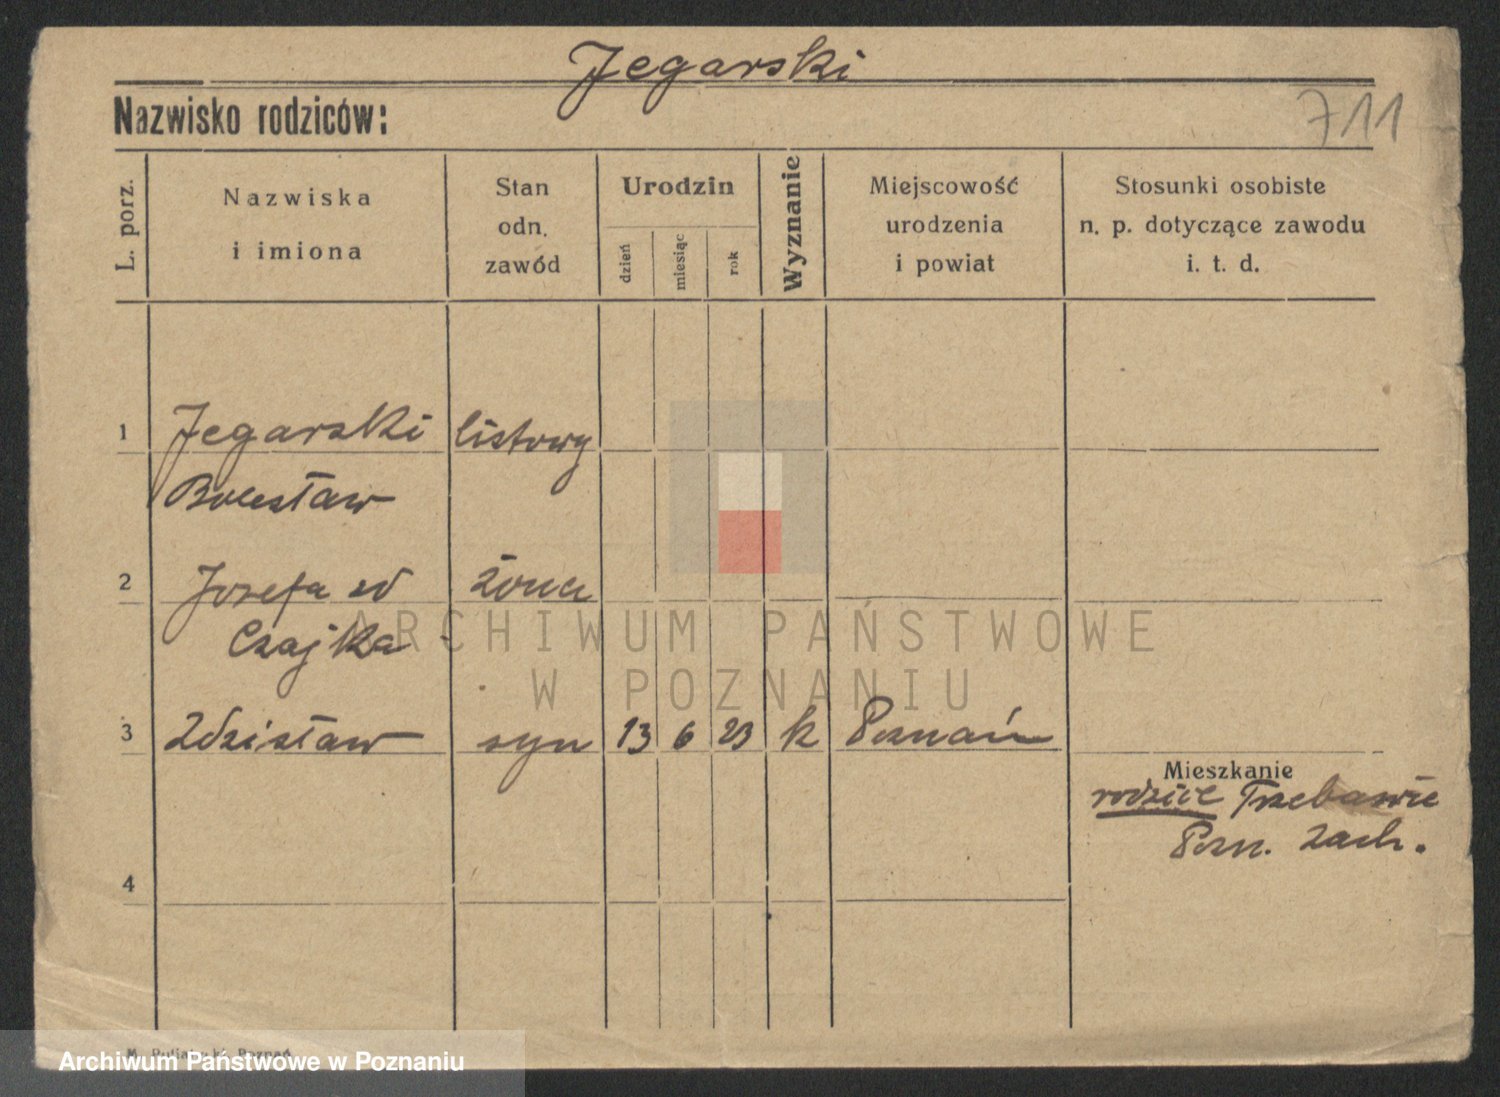 Jegarski
Nazwisko rodziców:
711
L. porz.
Nazwiska
i imiona
Stan
odn.
zawód
Urodzin
dzień
miesiąc
rok
Wyznanie
Miejscowość
urodzenia
i powiat
Stosunki osobiste
n. p. dotyczące zawodu
i. t. d.
1 Jegarski listowy
Bolesław
2 Józefa zd żona
Czajka
ARCHIWUM PAŃSTWOWE
W POZNANIU
3 Zdzisław syn 13 6 23 k Poznań
Mieszkanie
rodzice Trzebawie
Pozn. Zach.
4
Poznań
Archiwum Państwowe w Poznaniu